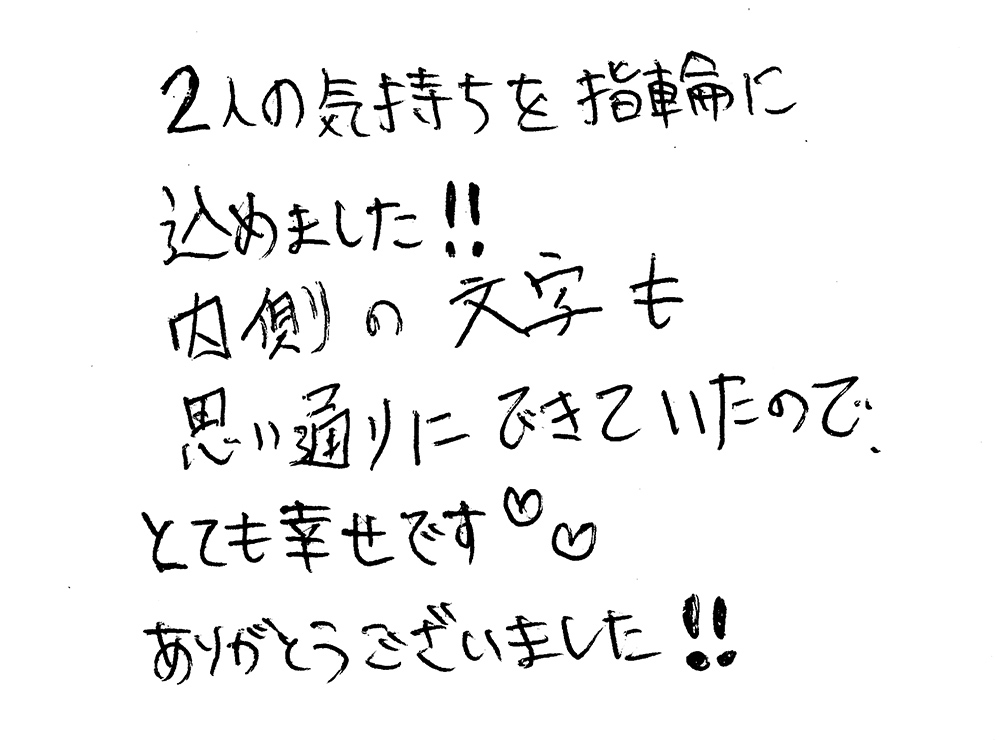 2人の気持ちを指輪に
込めました!!
内側の文字も
思い通りにできていたので、
とても幸せです♡♡
ありがとうございました!!